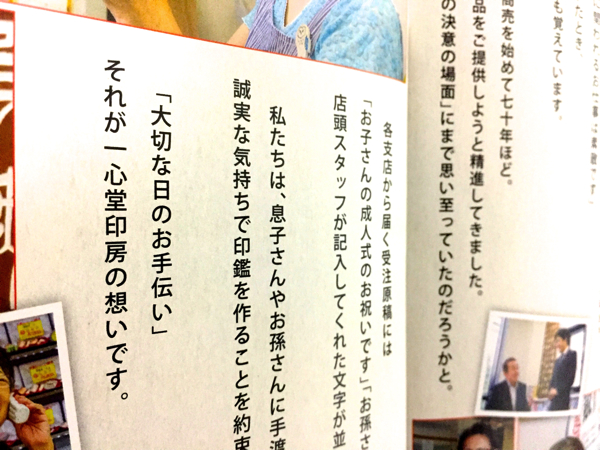 も覚えています。
商売を始めて七十年ほど。
品をご提供しようと精進してきました。
の決意の場面」にまで思い至っていたのだろうかと。
各支店から届く受注原稿には
「お子さんの成人式のお祝いです」「お孫さ
店頭スタッフが記入してくれた文字が並
私たちは、息子さんやお孫さんに手渡
誠実な気持ちで印鑑を作ることを約束
「大切な日のお手伝い」
それが一心堂印房の想いです。